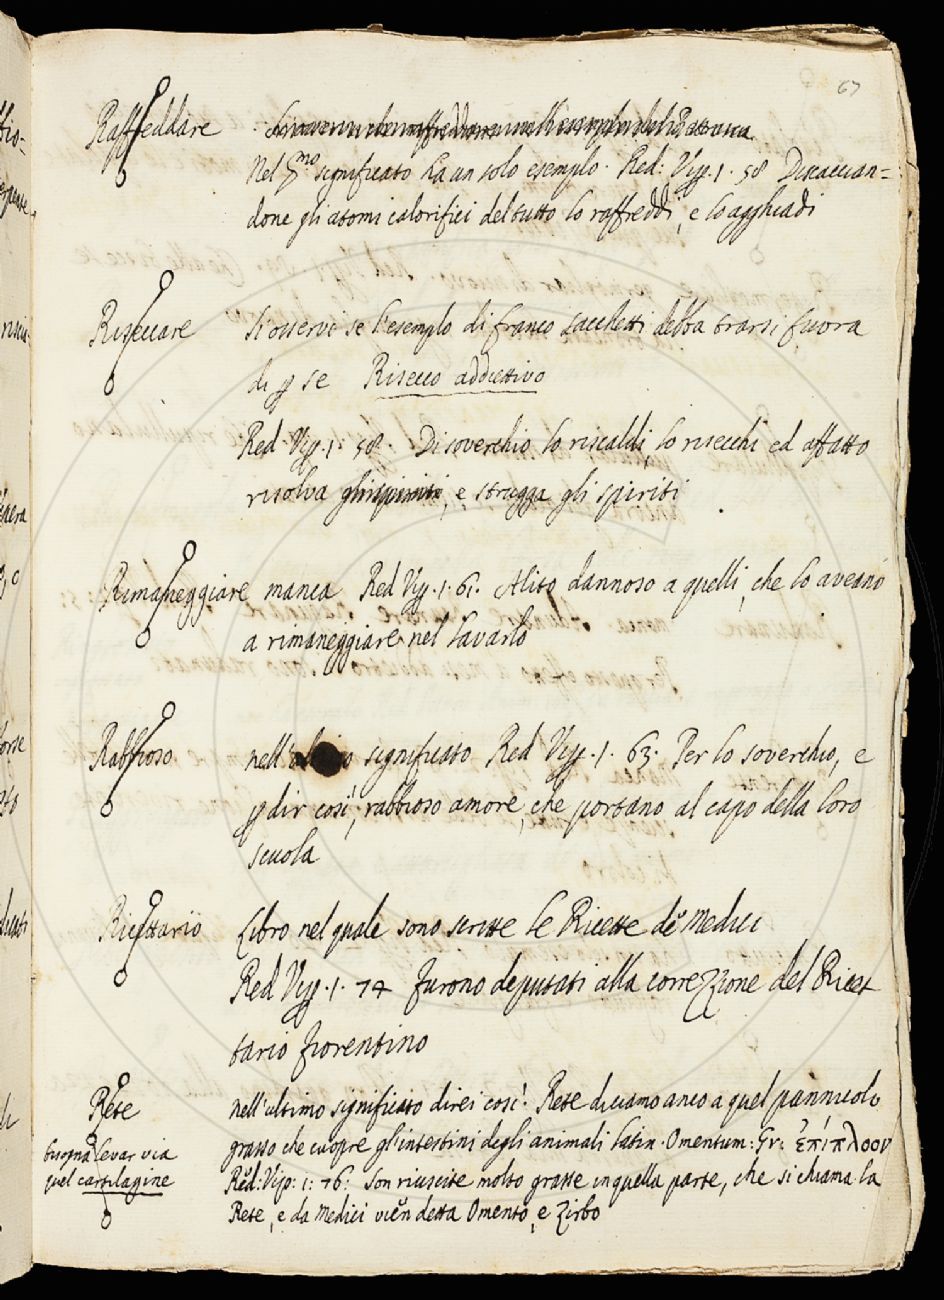 67
Raffreddare
Nel 5.mo significato ha un solo esempio. Red: Vip. 1. 58 Discaccian=
done gli atomi calorifici del tutto lo raffreddi, e lo agghiadi
Riseccare Si osservi se l'esemplo di franco sacchetti debba trarsi fuora
di p se Risecco addiettivo
Red. Vip. 1. 58. Di soverchio lo riscaldi, lo risecchi ed affatto
risolva, e strugga gli spiriti
Rimaneggiare manca Red Vip. 1. 61. Alito dannoso a quelli, che lo aveano
a rimaneggiare nel lavarlo
Rabbioso nell' significato Red Vip. 1. 63. Per lo soverchio, e
p dir così, rabbioso amore, che portano al capo della loro
scuola
Ricettario Libro nel quale sono scritte le Ricette de Medici
Red Vip. 1. 74 furono deputati alla correzzione del Ricet
tario fiorentino
Rete nell'ultimo significato direi così. Rete diciamo anco a quel pannicolo
bisogna levar via grasso che cuopre gl'intestini degli animali latin. Omentum: Gr: ἐπίπλοον
quel cartilagine Red: Vip: 1: 76: Son riuscite molto grasse in quella parte, che si chiama la
Rete, e da Medici vien detta Omento, e Zirbo